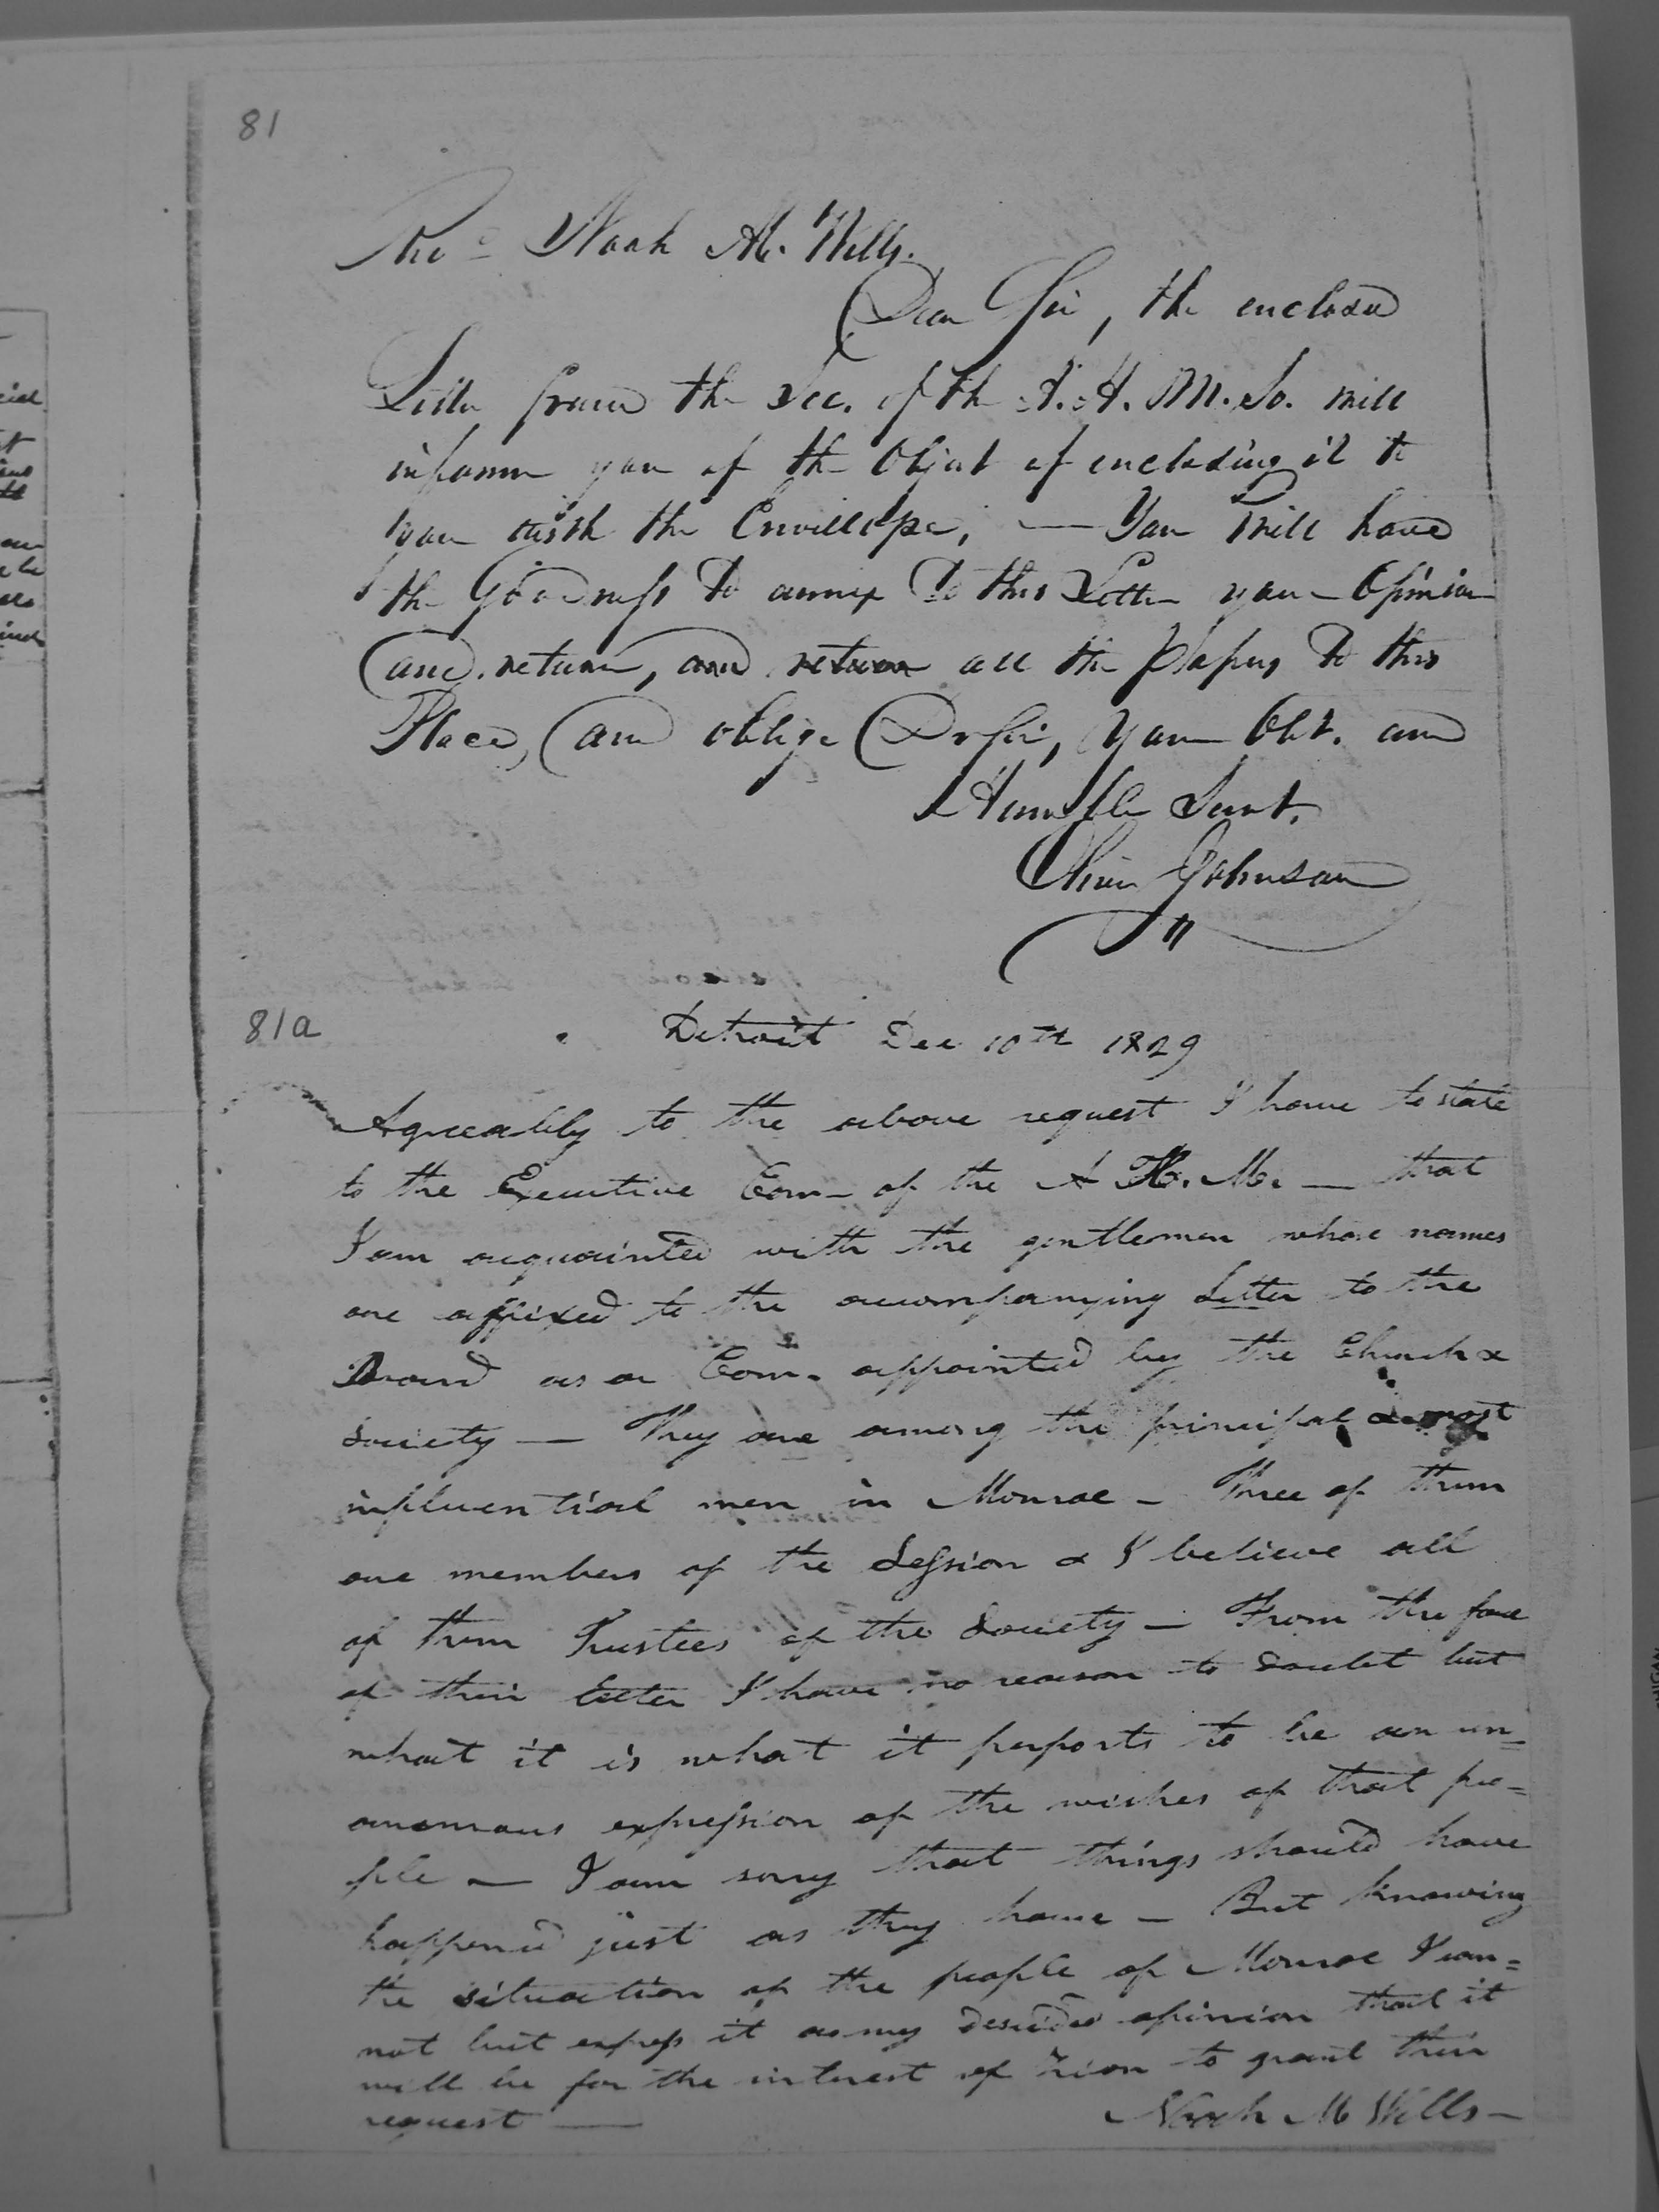 81
Revd Noah M. Wells.
Dear Sir, the enclosed
Letter from the Sec. of the A. H. M. So. will
inform you of the Object of enclosing it to
you with the Envellope, — You will have
the Goodness to annex to this Letter your Opinion
and return, and return all the papers to this
Place, and oblige Dr Sir, your Obt. and
Humble Servt.
Oliver Johnson
81a
Detroit Dec 10th 1829
Agreeably to the above request I have to state
to the Executive Com— of the A H. M. — that
I am acquainted with the gentlemen whose names
are affixed to the accompanying Letter to the
Board as a Com. appointed by the Church &
Society — They are among the principal & most
influential men in Monroe — Three of them
are members of the Session & I believe all
of them Trustees of the Society — From the face
of their letter I have no reason to doubt but
what it is what it perports to be an un=
anomous expression of the wishes of that peo=
ple — I am sorry that things should have
happened just as they have — But knowing
the situation of the people of Monroe I can=
not but express it as my desided opinion that it
will be for the interest of Zion to grant their
request — Noah M Wells —